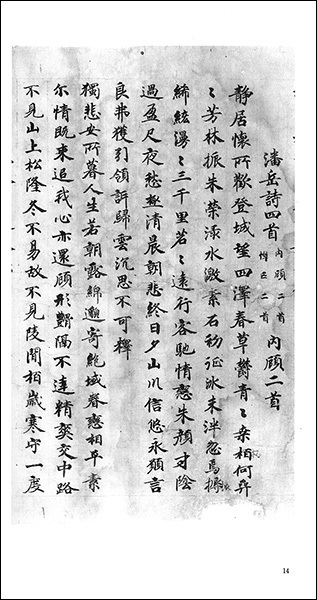 潘岳詩四首 内顧二首 悼亡二首 内顧二首
静居懷所歡登城望四澤春草欝青〻桒柏何弈
〻芳林振朱榮渌水激素石初征冰未泮忽焉
絺綌漫〻三千里苕〻遠行客馳情戀朱顔寸陰
過盈尺夜愁極清晨朝悲終日夕山川信悠永願言
良弗獲引領訊歸雲沉思不可釋
獨悲安所暮人生若朝露綿邈寄絶域眷戀相平素
尓情既來追我心亦還顧形體隔不達精爽交中路
不見山上松隆冬不易故不見陵間柏歲寒守一度
14